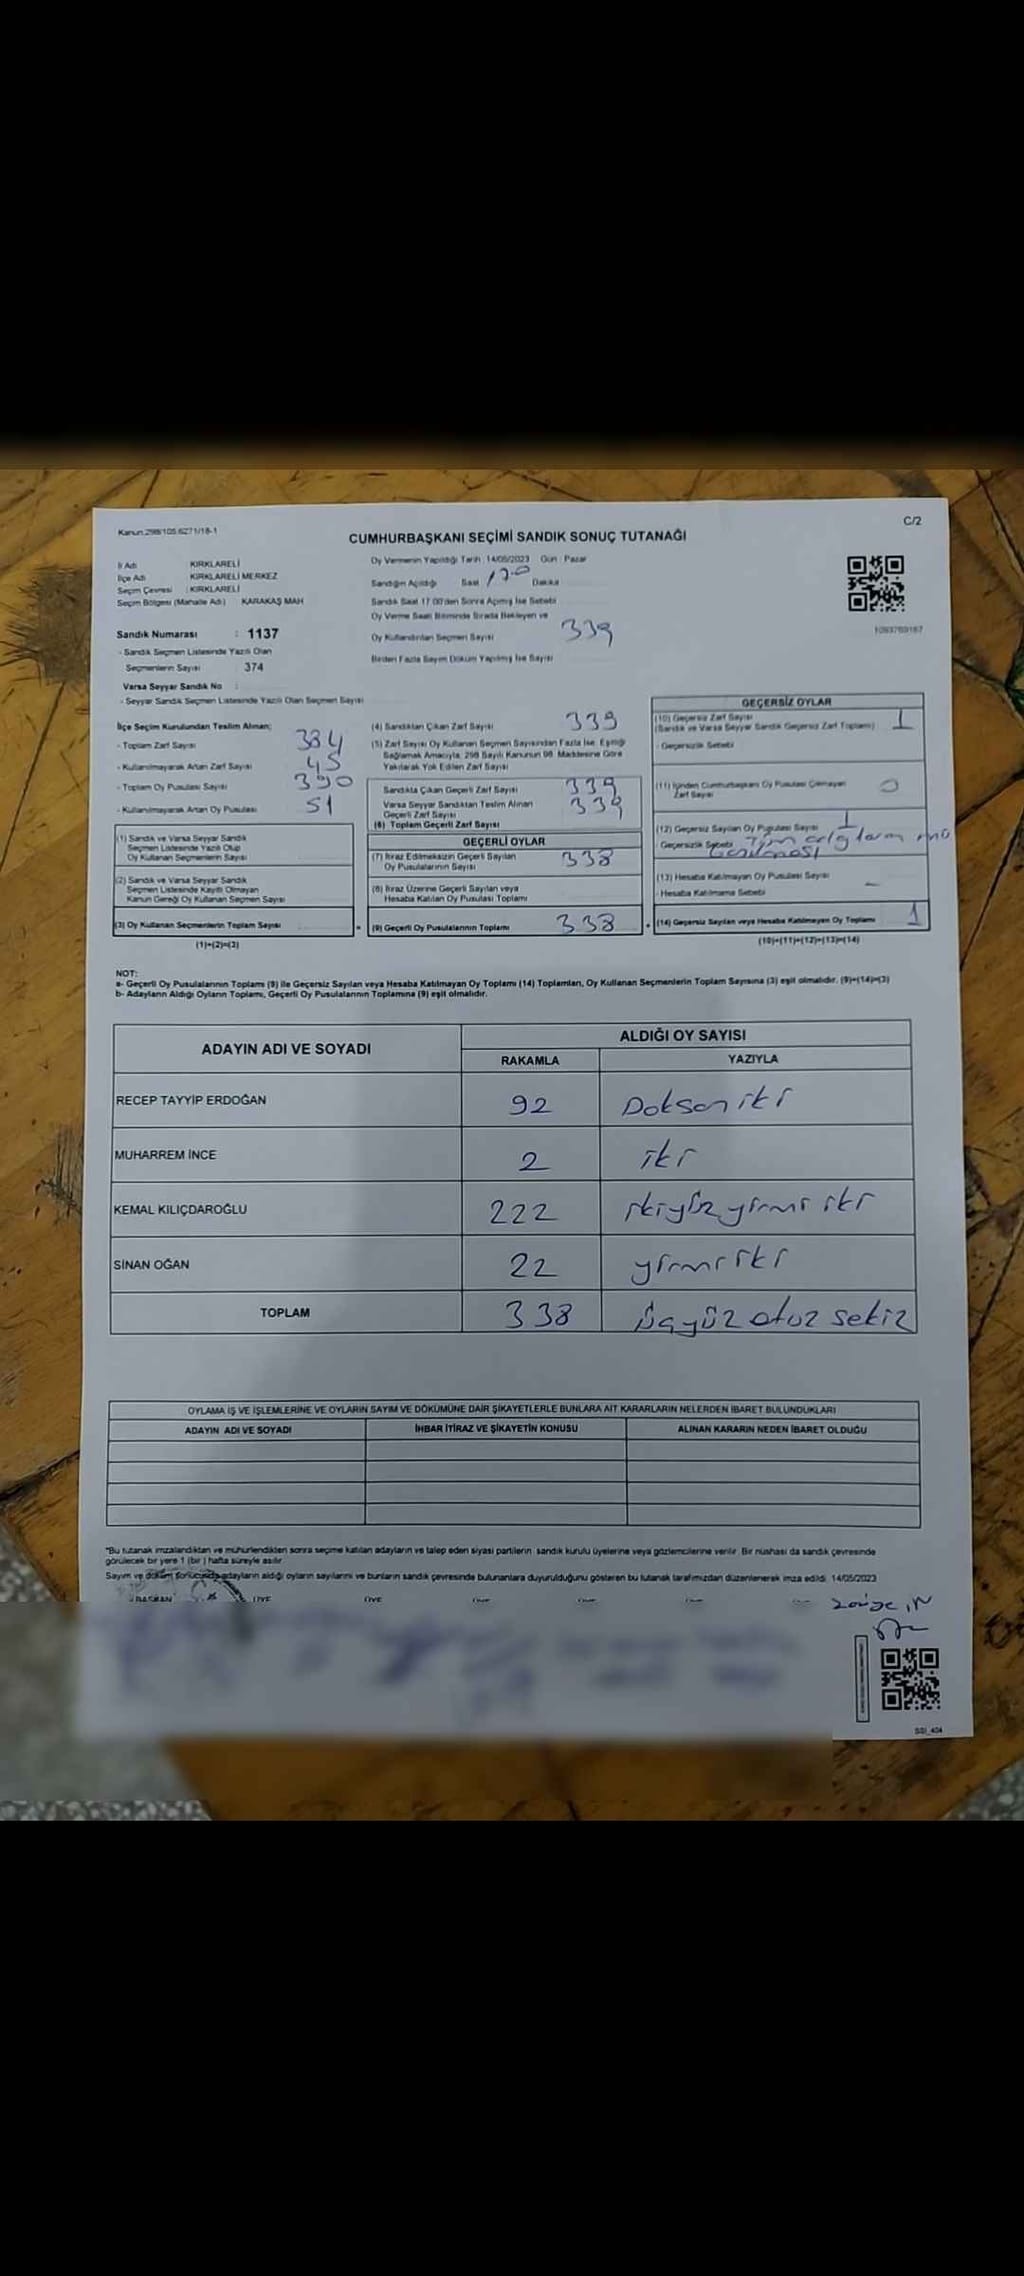 Kanun:298/105,6271/18-1
C/2
CUMHURBAŞKANI SEÇİMİ SANDIK SONUÇ TUTANAĞI
İl Adı KIRKLARELİ
İlçe Adı KIRKLARELİ MERKEZ
Seçim Çevresi : KIRKLARELİ
Seçim Bölgesi (Mahalle Adı) KARAKAŞ MAH
Sandık Numarası : 1137
- Sandık Seçmen Listesinde Yazılı Olan
Seçmenlerin Sayısı 374
Varsa Seyyar Sandık No :
- Seyyar Sandık Seçmen Listesinde Yazılı Olan Seçmen Sayısı
Oy Vermenin Yapıldığı Tarih : 14/05/2023 Gün : Pazar
Sandığın Açıldığı Saat Dakika
Sandık Saat 17:00'den Sonra Açılmış İse Sebebi
Oy Verme Saati Bitiminde Sırada Bekleyen ve
Oy Kullandırılan Seçmen Sayısı 339
Birden Fazla Sayım Döküm Yapılmış İse Sayısı
1093769167
İlçe Seçim Kurulundan Teslim Alınan;
- Toplam Zarf Sayısı 384
- Kullanılmayarak Artan Zarf Sayısı 45
- Toplam Oy Pusulası Sayısı 390
- Kullanılmayarak Artan Oy Pusulası 51
(1) Sandık ve Varsa Seyyar Sandık
Seçmen Listesinde Yazılı Olup
Oy Kullanan Seçmenlerin Sayısı
(2) Sandık ve Varsa Seyyar Sandık
Seçmen Listesinde Kayıtlı Olmayan
Kanun Gereği Oy Kullanan Seçmen Sayısı
(3) Oy Kullanan Seçmenlerin Toplam Sayısı
(1)+(2)=(3)
(4) Sandıktan Çıkan Zarf Sayısı 339
(5) Zarf Sayısı Oy Kullanan Seçmen Sayısından Fazla İse, Eşitliği
Sağlamak Amacıyla, 298 Sayılı Kanunun 98. Maddesine Göre
Yakılarak Yok Edilen Zarf Sayısı
Sandıkta Çıkan Geçerli Zarf Sayısı 339
Varsa Seyyar Sandıktan Teslim Alınan
Geçerli Zarf Sayısı 339
(6) Toplam Geçerli Zarf Sayısı
GEÇERLİ OYLAR
(7) İtiraz Edilmeksizin Geçerli Sayılan
Oy Pusulalarının Sayısı 338
(8) İtiraz Üzerine Geçerli Sayılan veya
Hesaba Katılan Oy Pusulası Toplamı
(9) Geçerli Oy Pusulalarının Toplamı 338
GEÇERSİZ OYLAR
(10) Geçersiz Zarf Sayısı 1
(Sandık ve Varsa Seyyar Sandık Geçersiz Zarf Toplamı)
- Geçersizlik Sebebi
(11) İçinden Cumhurbaşkanı Oy Pusulası Çıkmayan
Zarf Sayısı 0
(12) Geçersiz Sayılan Oy Pusulası Sayısı 1
- Geçersizlik Sebebi
(13) Hesaba Katılmayan Oy Pusulası Sayısı -
- Hesaba Katılmama Sebebi
(14) Geçersiz Sayılan veya Hesaba Katılmayan Oy Toplamı 1
(10)+(11)+(12)+(13)=(14)
NOT:
a- Geçerli Oy Pusulalarının Toplamı (9) ile Geçersiz Sayılan veya Hesaba Katılmayan Oy Toplamı (14) Toplamları, Oy Kullanan Seçmenlerin Toplam Sayısına (3) eşit olmalıdır. (9)+(14)=(3)
b- Adayların Aldığı Oyların Toplamı, Geçerli Oy Pusulalarının Toplamına (9) eşit olmalıdır.
ADAYIN ADI VE SOYADI ALDIĞI OY SAYISI
RAKAMLA YAZIYLA
RECEP TAYYİP ERDOĞAN 92 Doksan iki
MUHARREM İNCE 2 iki
KEMAL KILIÇDAROĞLU 222 ikiyüz yirmi iki
SİNAN OĞAN 22 yirmi iki
TOPLAM 338 üçyüz otuz sekiz
OYLAMA İŞ VE İŞLEMLERİNE VE OYLARIN SAYIM VE DÖKÜMÜNE DAİR ŞİKAYETLERLE BUNLARA AİT KARARLARIN NELERDEN İBARET BULUNDUKLARI
ADAYIN ADI VE SOYADI İHBAR İTİRAZ VE ŞİKAYETİN KONUSU ALINAN KARARIN NEDEN İBARET OLDUĞU
*Bu tutanak imzalandıktan ve mühürlendikten sonra seçime katılan adayların ve talep eden siyasi partilerin sandık kurulu üyelerine veya gözlemcilerine verilir. Bir nüshası da sandık çevresinde
görülecek bir yere 1 (bir) hafta süreyle asılır.
Sayım ve döküm sonucunda adayların aldığı oyların sayılarını ve bunların sandık çevresinde bulunanlara duyurulduğunu gösteren bu tutanak tarafımızdan düzenlenerek imza edildi. 14/05/2023
BAŞKAN ÜYE ÜYE ÜYE ÜYE ÜYE
SSI_404